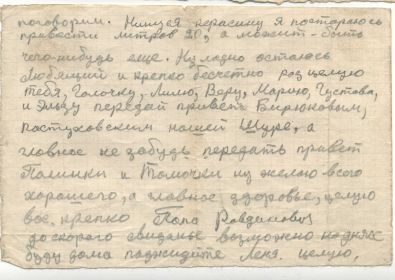 поговорим. Нинуся керасину я постараюсь
привести литров 20, а можит-быть
чего-нибудь еще. Ну ладно остаюсь
любящий и крепко бесчетно раз целую
тебя, Галочку, Лилю, Веру, Марию, Густова,
и Эльзу передай привет Бирюковым,
пастуховским нашей Шуре, а
главное не забудь передать привет
Полинки и Томочки их желаю всего
харашего, а главное здоровье, целую
вас, крепко Папа
до скорого свиданье возможно на днях
буду дома паджидайте Леня. целую,